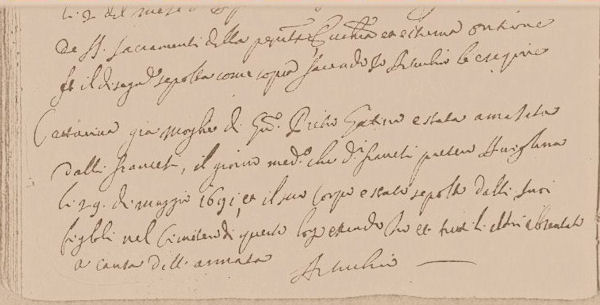 li 2 del mese
De SS. Sacramenti della penit.a Eucha.a et estrema ontione
il di seg.te sepolta come sopra facendo Io le esequie
Cattarina già moglie di Gio. Pietro è stata amazata
dalli francesi, il giorno med.o che d.i francesi presero Avigliana
li 29. di maggio 1691, et il suo corpo è stato sepolto dalli suoi
figlioli nel Cimitero di questo loco essendo Io et tutti li altri absentati
a causa dell'armata